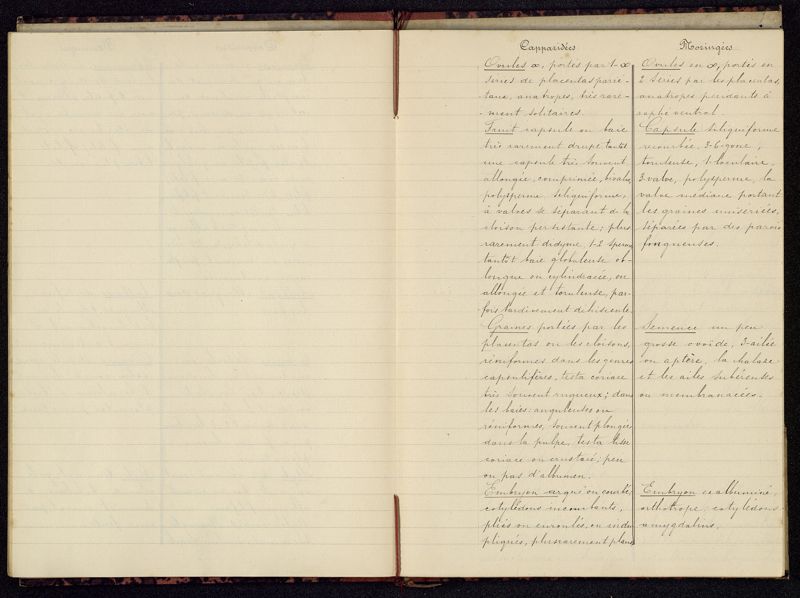 Capparidées
Ovules ∞, portés par 1-∞
séries de placentas parié-
taux, anatropes, très rare-
ment solitaires.
Fruit capsule ou baie
très rarement drupe tantôt
une capsule très souvent
allongée, comprimée, bivalve
polysperme siliquiforme,
à valves se séparant de la
cloison persistante; plus
rarement didyme 1-2 sperme
tantôt baie globuleuse ob-
longue ou cylindracée, ou
allongée et toruleuse, par-
fois tardivement déhiscente.
Graines portées par les
placentas ou les cloisons,
réniformes dans les genres
capsulifères, testa coriace
très souvent rugueux; dans
les baies: anguleuses ou
réniformes, souvent plongées
dans la pulpe, testa lisse
coriace ou crustacé; peu
ou pas d'albumen.
Embryon arqué ou courbé,
cotylédons incombants,
pliés ou enroulés, ou indu-
pliqués, plus rarement plans
Moringées
Ovules en ∞, portés en
2 séries par les placentas,
anatropes pendants à
raphé ventral.
Capsule siliquiforme
recourbée, 3-6 gone,
toruleuse, 1-loculaire,
3-valve, polysperme, la
valve médiane portant
les graines unisériées,
séparées par des parois
fongueuses.
Semence un peu
grosse ovoïde, 3-ailée
ou aptère, la chalaze
et les ailes subéreuses
ou membranacées.
Embryon exalbuminé,
orthotrope; cotylédons
amygdalins.